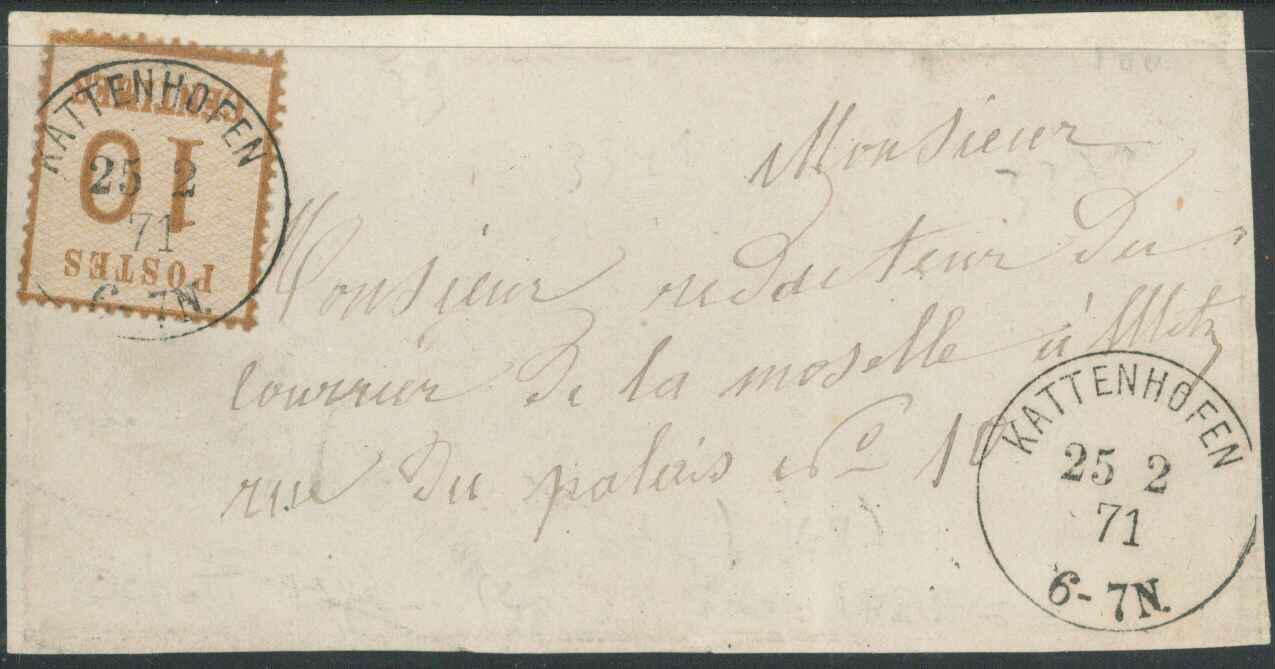 KATTENHOFEN
25 2
71
6-7N.
POSTES
10
CENTIMES
Monsieur
Monsieur redacteur du
courrier de la moselle à Metz
rue du palais No 10
KATTENHOFEN
25 2
71
6-7N.